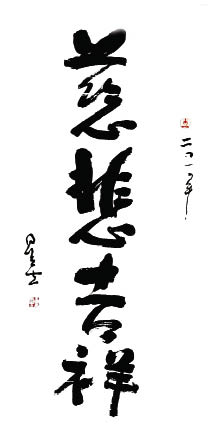 二〇一〇年
慈悲吉祥
星云